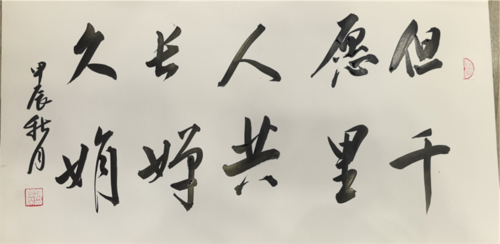 但愿人长久
千里共婵娟
甲辰秋月